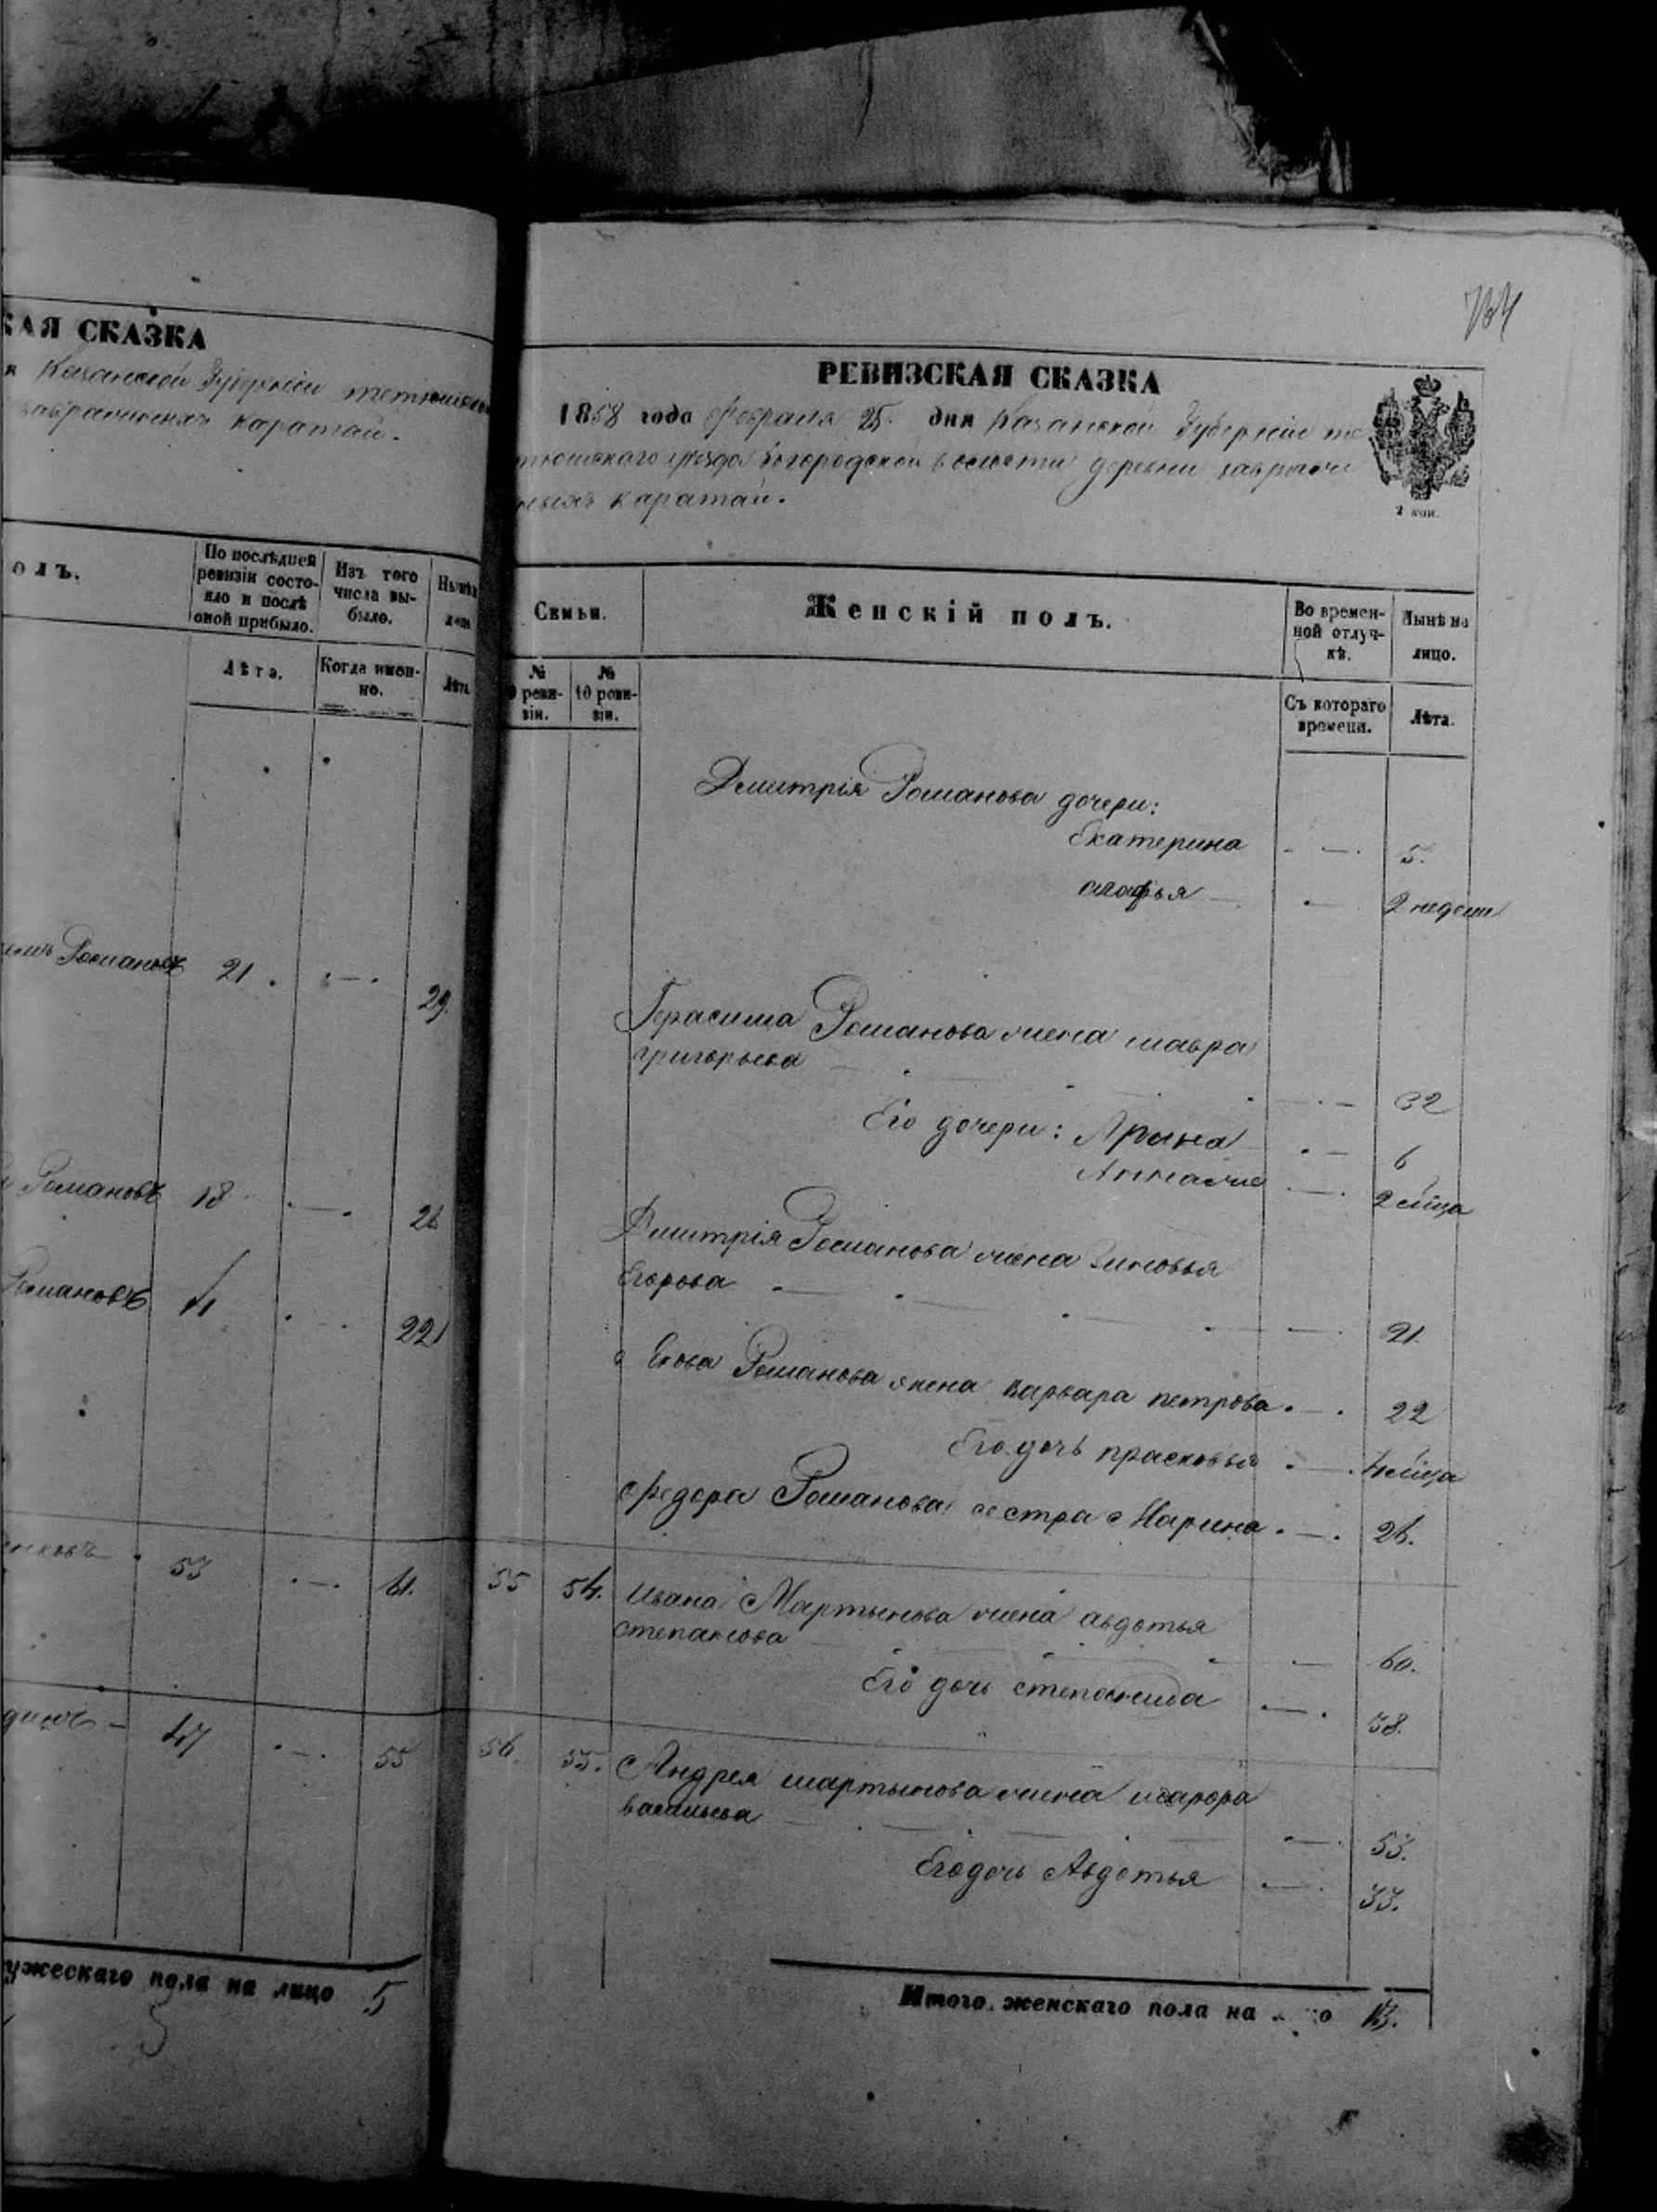 КАЯ СКАЗКА
Казанской Губернiи тетюшск
заврачныхъ каратай.
олъ.
По послѣдней ревизiи состояло и послѣ оной прибыло.
Изъ того числа выбыло.
Лѣта.
Когда именно.
Лѣта.
Романовъ 21. 29.
Романовъ 18 26
Романовъ 22
53 61.
47 55
ужескаго пола на лицо 5
764
РЕВИЗСКАЯ СКАЗКА
1858 года февраля 25. дня Казанской Губернiи те
тюшскаго уѣзда Богородской волости деревни заврачн
ныхъ каратай.
2 коп.
Семьи.
Женскiй полъ.
Во временной отлучкѣ.
Нынѣ на лицо.
№ 9 ревизiи.
№ 10 ревизiи.
Съ котораго времени.
Лѣта.
Дмитрiя Романова дочери:
Екатерина 5.
2 недели
Герасима Романова жена мавра
григорьева 32
Его дочери: Арина 6
2 мца
Дмитрiя Романова жена Зиновья
Егорова 21.
Романова жена варвара петрова 22
Его дочь прасковья 4 мца
Федора Романова сестра Марина 26.
55 54. Ивана Мартынова жена авдотья
степанова 60.
Его дочь степанида 38.
56. 55. Андрея мартынова жена
васильева 53.
Его дочь Авдотья 33.
Итого женскаго пола на лицо 13.